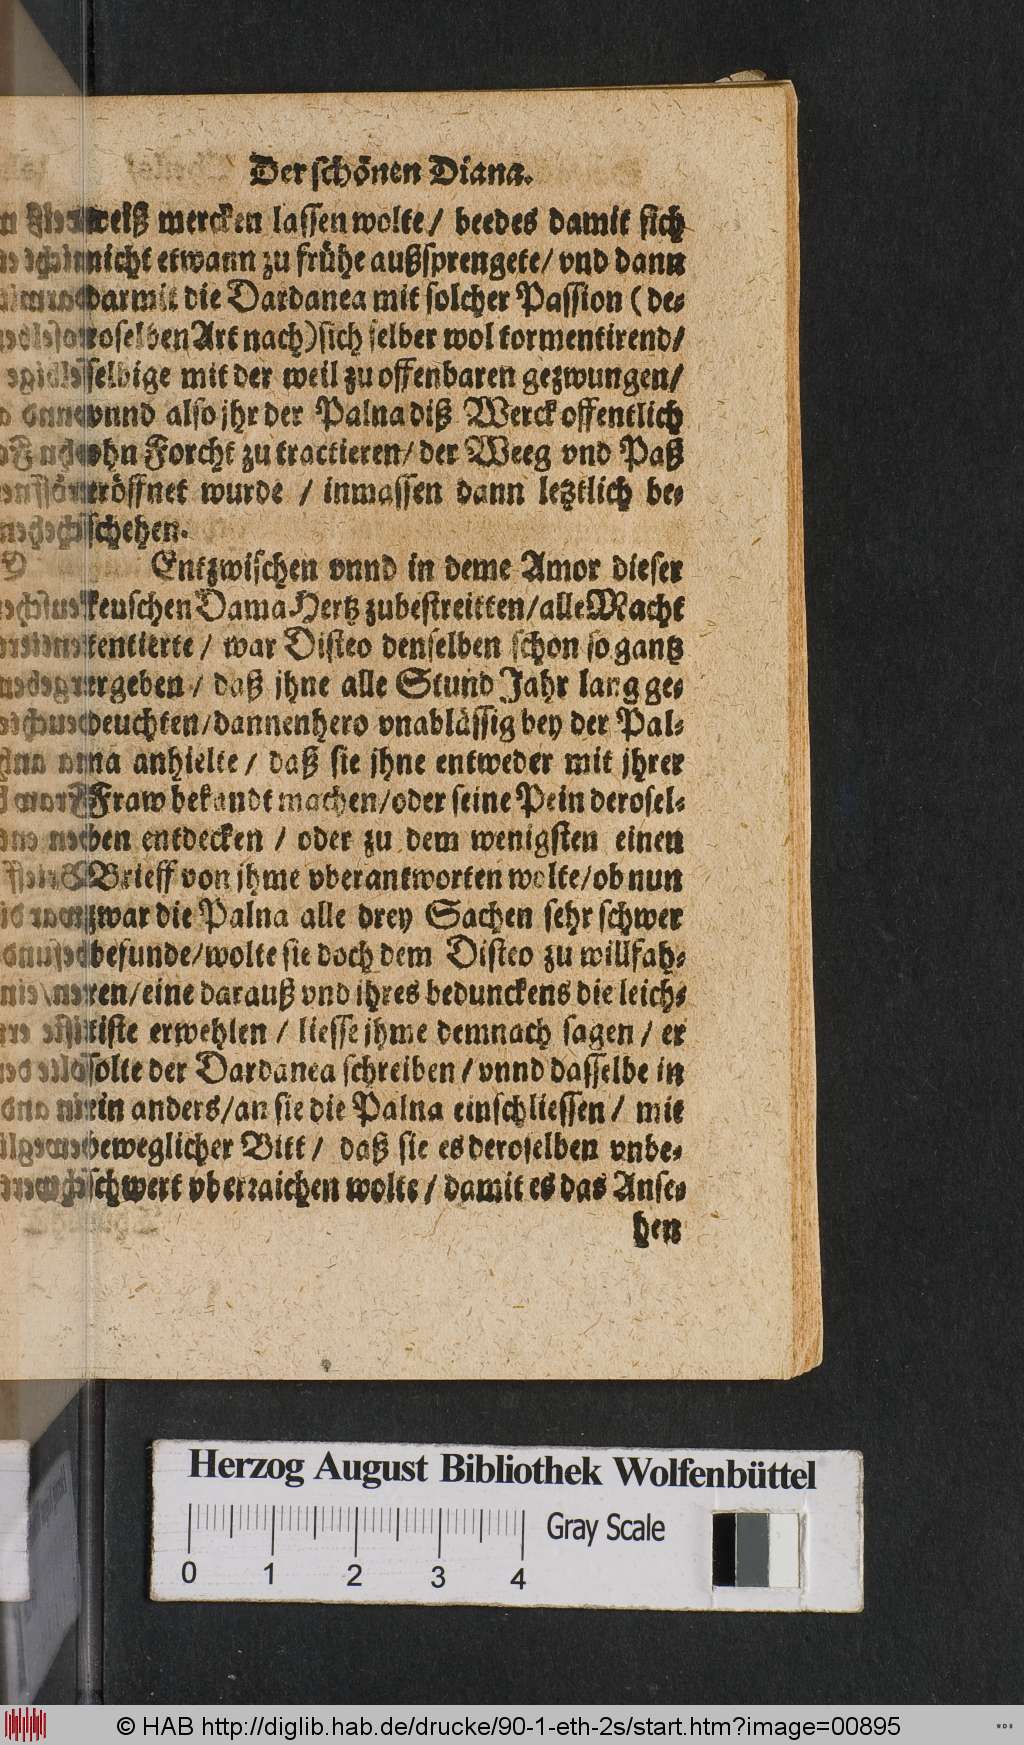 Der schönen Diana.
weiß mercken lassen wolte/ beedes damit sich
nicht etwann zu frühe außsprengete/ vnd dann
darmit die Dardanea mit solcher Passion (de-
roselben Art nach) sich selber wol tormentirend/
selbige mit der weil zu offenbaren gezwungen/
vnnd also jhr der Palna diß Werck offentlich
ohn Forcht zu tractieren/ der Weeg vnd Paß
eröffnet wurde / inmassen dann letztlich be-
schehen.
Entzwischen vnnd in deme Amor dieser
keuschen Dama Hertz zubestreitten/ alle Macht
tentierte/ war Disteo denselben schon so gantz
ergeben/ daß jhne alle Stund Jahr lang ge-
deuchten/ dannenhero vnablässig bey der Pal-
na anhielte/ daß sie jhne entweder mit jhrer
Fraw bekandt machen/ oder seine Pein derosel-
ben entdecken / oder zu dem wenigsten einen
Brieff von jhme vberantworten wolte/ ob nun
zwar die Palna alle drey Sachen sehr schwer
befunde/ wolte sie doch dem Disteo zu willfah-
ren/ eine darauß vnd ihres bedunckens die leich-
tiste erwehlen / liesse jhme demnach sagen / er
solte der Dardanea schreiben / vnnd dasselbe in
ein anders/ an sie die Palna einschliessen / mit
beweglicher Bitt / daß sie es deroselben vnbe-
schwert vberraichen wolte / damit es das Anse-
hen
Herzog August Bibliothek Wolfenbüttel
Gray Scale
0 1 2 3 4
© HAB http://diglib.hab.de/drucke/90-1-eth-2s/start.htm?image=00895